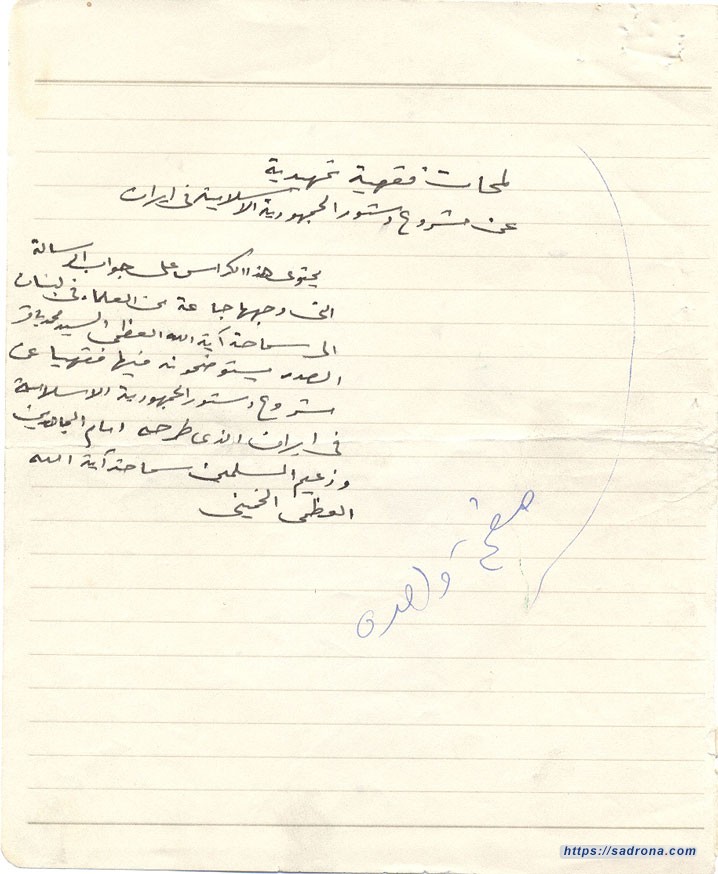 لمحات فقهية تمهيدية
عن مشروع دستور الجمهورية الاسلامية في ايران
يحتوى هذا الكراس على جواب الرسالة
التى وجهها جماعة من العلماء في لبنان
الى سماحة آية الله العظمى السيد محمد باقر
الصدر يستوضحونه فيها فقهيا عن
مشروع دستور الجمهورية الاسلامية
في ايران الذى طرحه امام المجاهدين
وزعيم المسلمين سماحة آية الله
العظمى الخمينى
صفحة واحدة
https://sadrona.com